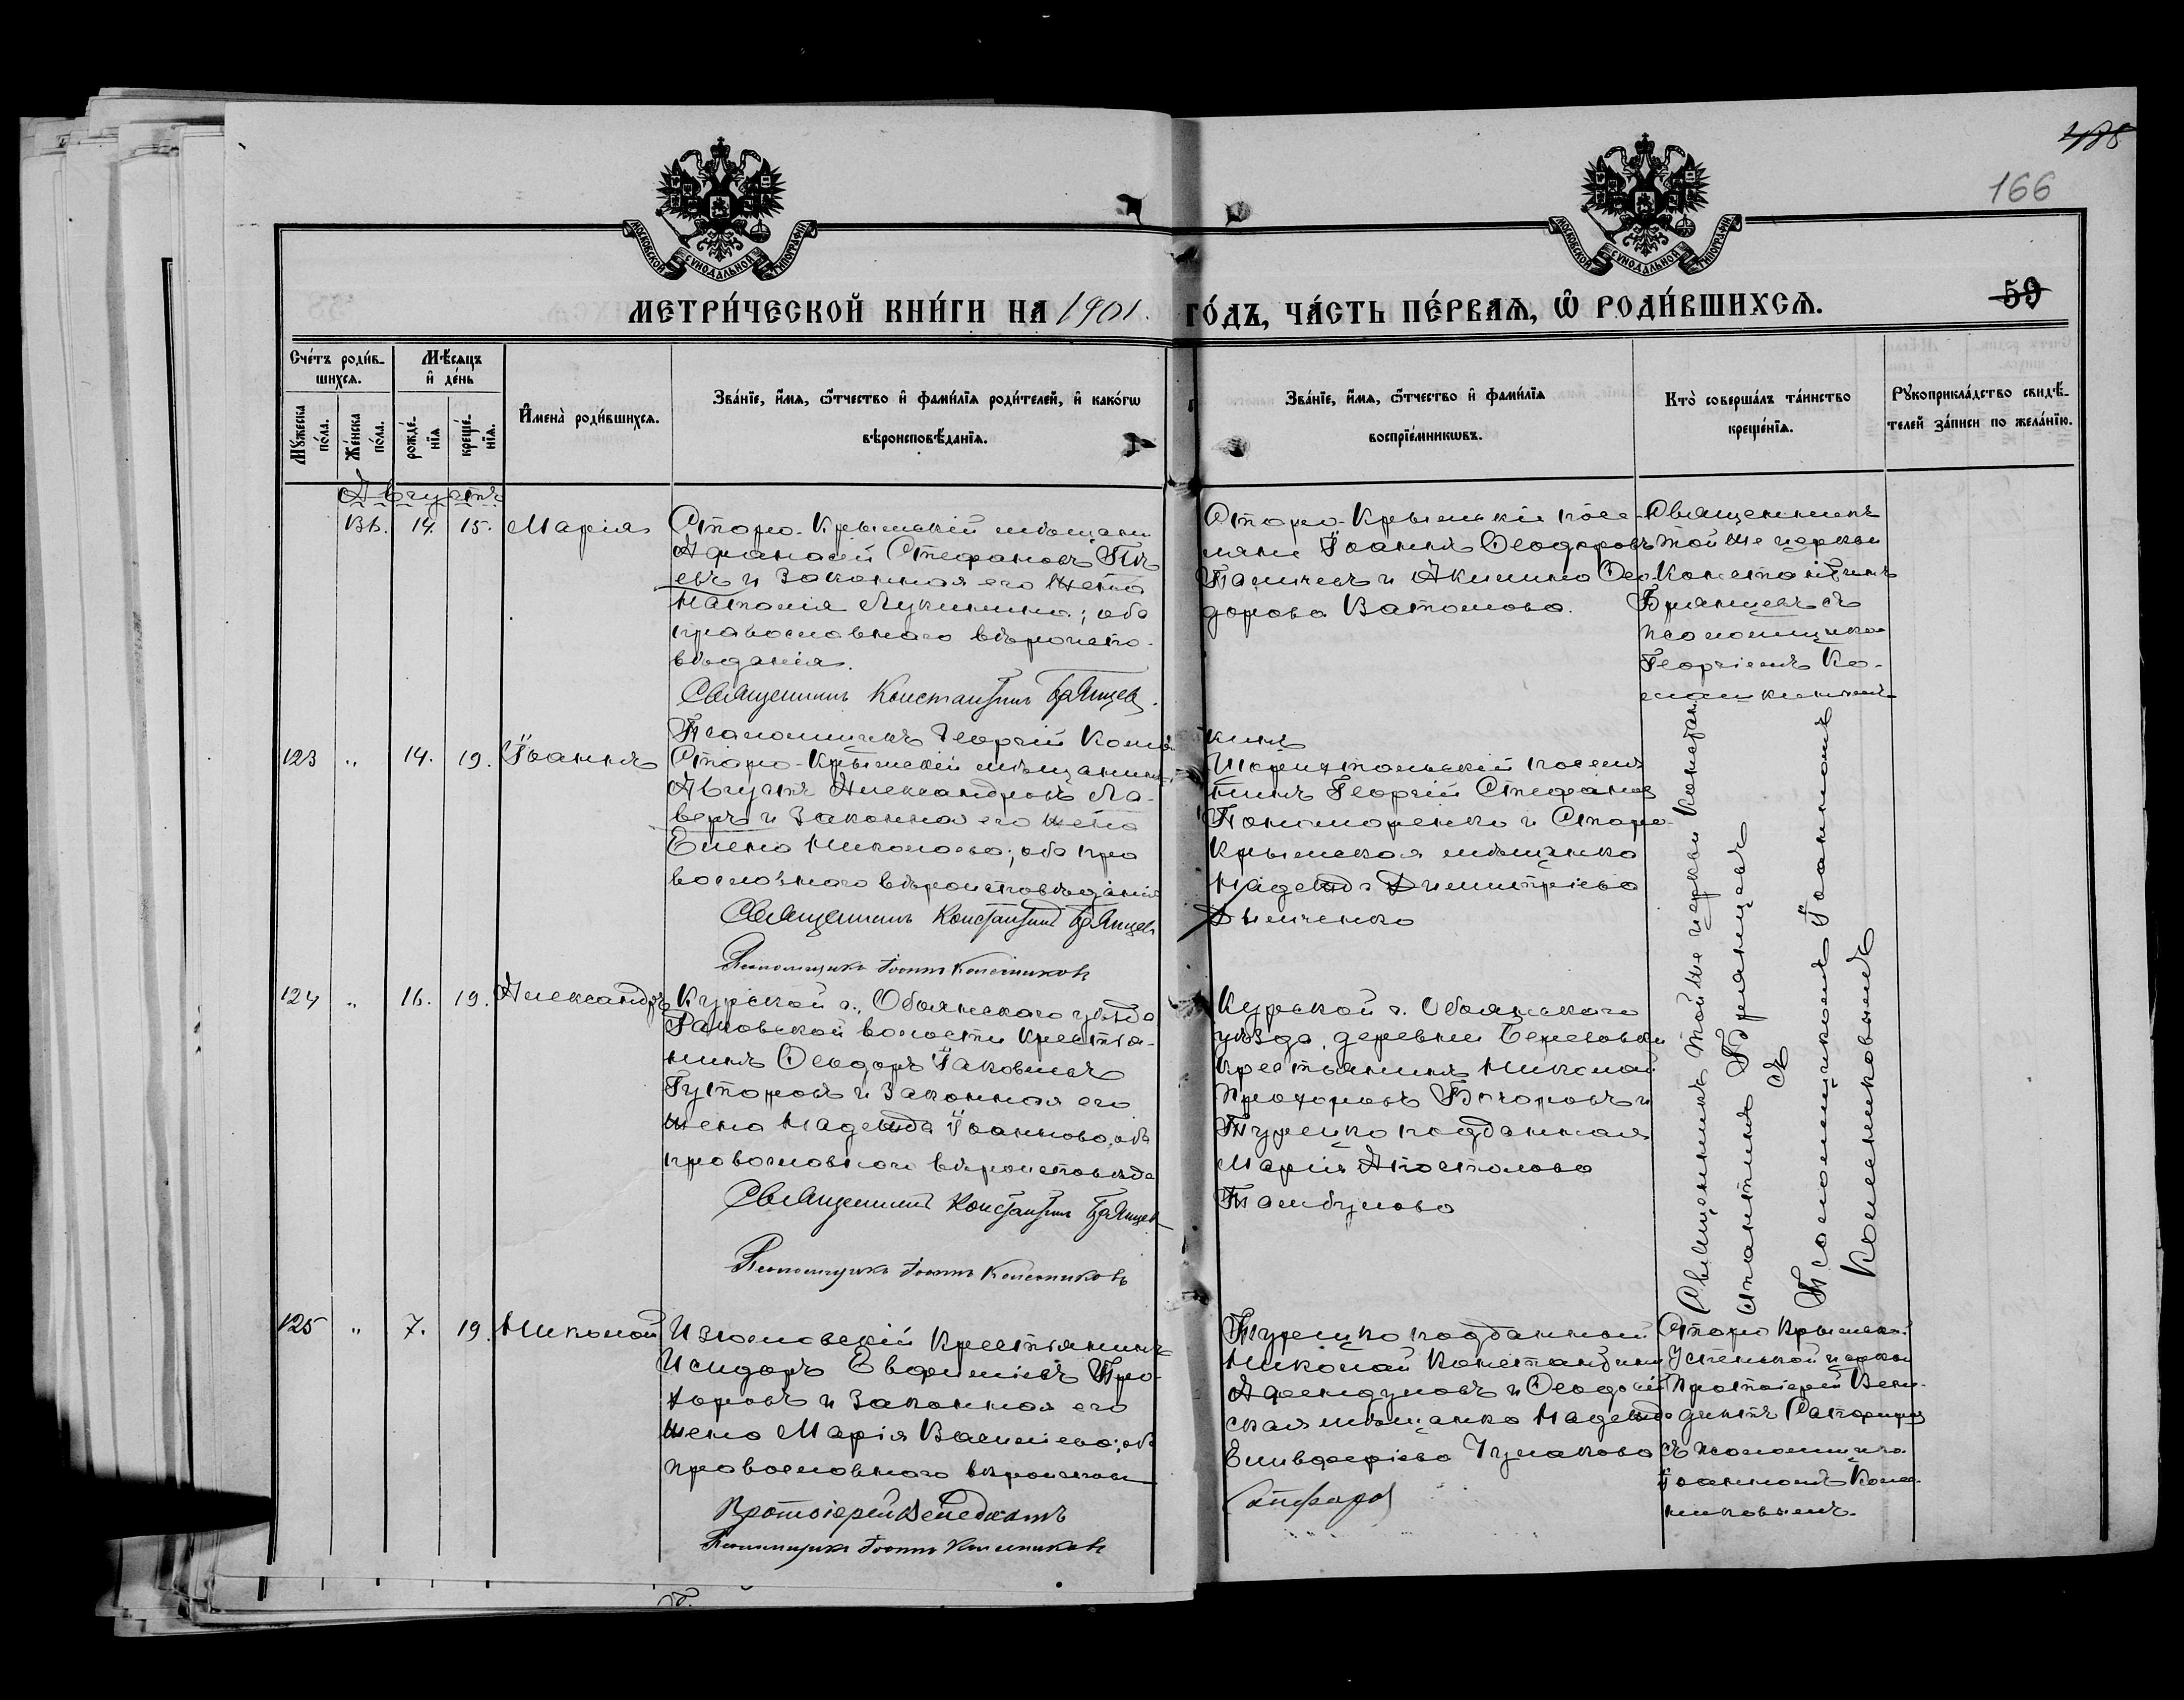 166
59
МОСКОВСКОЙ СУНОДАЛЬНОЙ ТИПОГРАФІИ
МОСКОВСКОЙ СУНОДАЛЬНОЙ ТИПОГРАФІИ
МЕТРИ́ЧЕСКОЙ КНИ́ГИ НА 1901. ГО́ДЪ, ЧА́СТЬ ПЕ́РВАѦ, Ѿ РОДИ́ВШИХСѦ.
Сче́тъ роди́в-
шихсѧ.
Мꙋжеска
по́ла.
Же́нска
по́ла.
Мѣ́сѧцъ
и҆ де́нь
рожде́-
нїѧ
креще́-
нїѧ.
И҆мена̀ роди́вшихсѧ.
Зва́нїе, и҆́мѧ, ѻ҆́тчество и҆ фами́лїѧ роди́телей, и҆ како́гѡ
вѣроисповѣ́данїѧ.
Зва́нїе, и҆́мѧ, ѻ҆́тчество и҆ фами́лїѧ
воспрїе́мникѡвъ.
Кто̀ соверша́лъ та́инство
креще́нїѧ.
Рꙋкоприкла́дство свидѣ́-
телей за́писи по жела́нїю.
Августъ
14. 15. Марія
Старо-Крымскій мѣщанин
Афанасій Стефановъ
евъ и законная его жена
Наталія Лукинична; оба
православнаго вѣроиспо-
вѣданія.
Священникъ Константинъ Брянцев.
Псаломщикъ Георгій
Старо-Крымскіе посе-
ляне Іоаннъ Ѳеодоровъ
и Акилина Ѳео-
дорова
Священникъ
той же церкви
Константинъ
Брянцевъ съ
псаломщико
Георгіемъ
123 " 14. 19. Іоаннъ
Старо-Крымскій мѣщанинъ
Августъ Александровъ Ла-
веръ и законная его жена
Елена Николаева; оба пра
вославнаго вѣроисповѣданія
Священникъ Константинъ Брянцев
Псаломщикъ Іоаннъ Колесниковъ
Маріупольскій поселя
нинъ Георгій Стефанов
Пономаренко и Старо-
Крымская мѣщанка
Надежда Димитріева
Дымченко
Священникъ той же церкви Констан
стантинъ Брянцевъ
съ
Псаломщикомъ Іоанномъ
Колесниковымъ
124 " 16. 19. Александръ
Курской г., Обоянскаго уѣзда
Раковской волости крестья-
нинъ Ѳеодоръ Іаковлевъ
Гуторовъ и законная его
жена Надежда Іоаннова, об
православнаго вѣроисповѣда
Священникъ Константинъ Брянцев
Псаломщикъ Іоаннъ Колесниковъ
Курской г. Обоянскаго
уѣзда, деревни Березовки
крестьянинъ Николай
Прохоровъ и
Турецко подданная
Марія Апостолова
Тамбулова
125 " 7. 19. Николай
Изюмовскій крестьянинъ
Исидоръ Евфиміевъ Про-
хоровъ и законная его
жена Марія Васильева; об
православнаго вѣроиспов
Протоіерей Венедиктъ
Псаломщикъ Іоаннъ Колесниковъ
Турецко подданный
Николай Константинов
Афендуловъ и Ѳеодосій
ская мѣщанка Надежда
Елевферіева Чумакова
Старо Крымской
Успенской церкви
Протоіерей Вене-
диктъ
съ псаломщико
Іоанномъ Колес-
никовымъ.